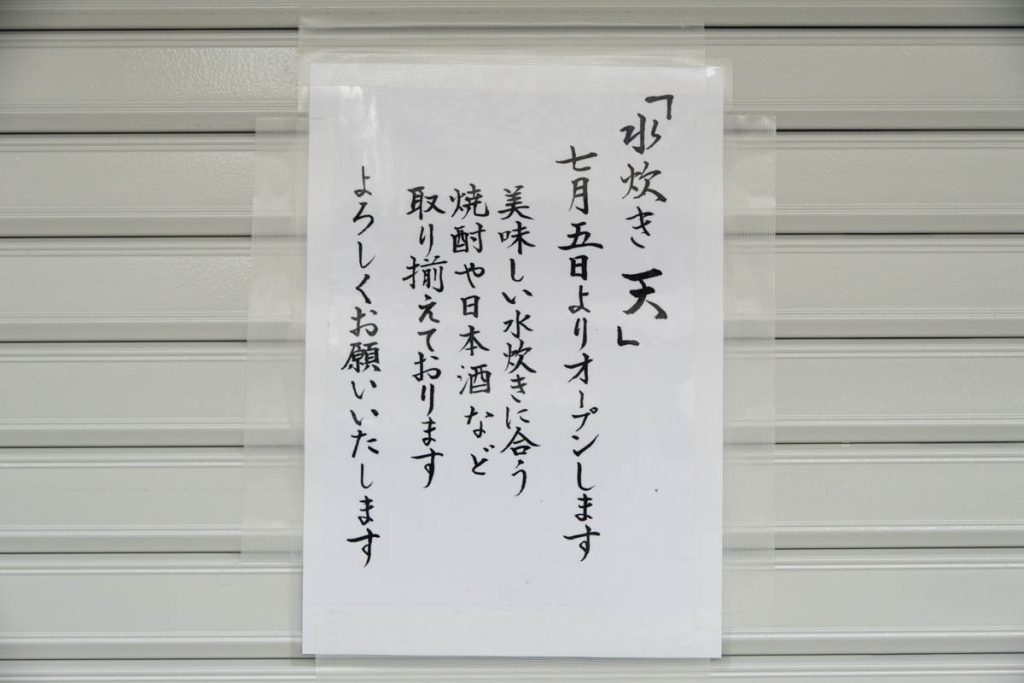 「水炊き 天」
七月五日よりオープンします
美味しい水炊きに合う
焼酎や日本酒など
取り揃えております
よろしくお願いいたします